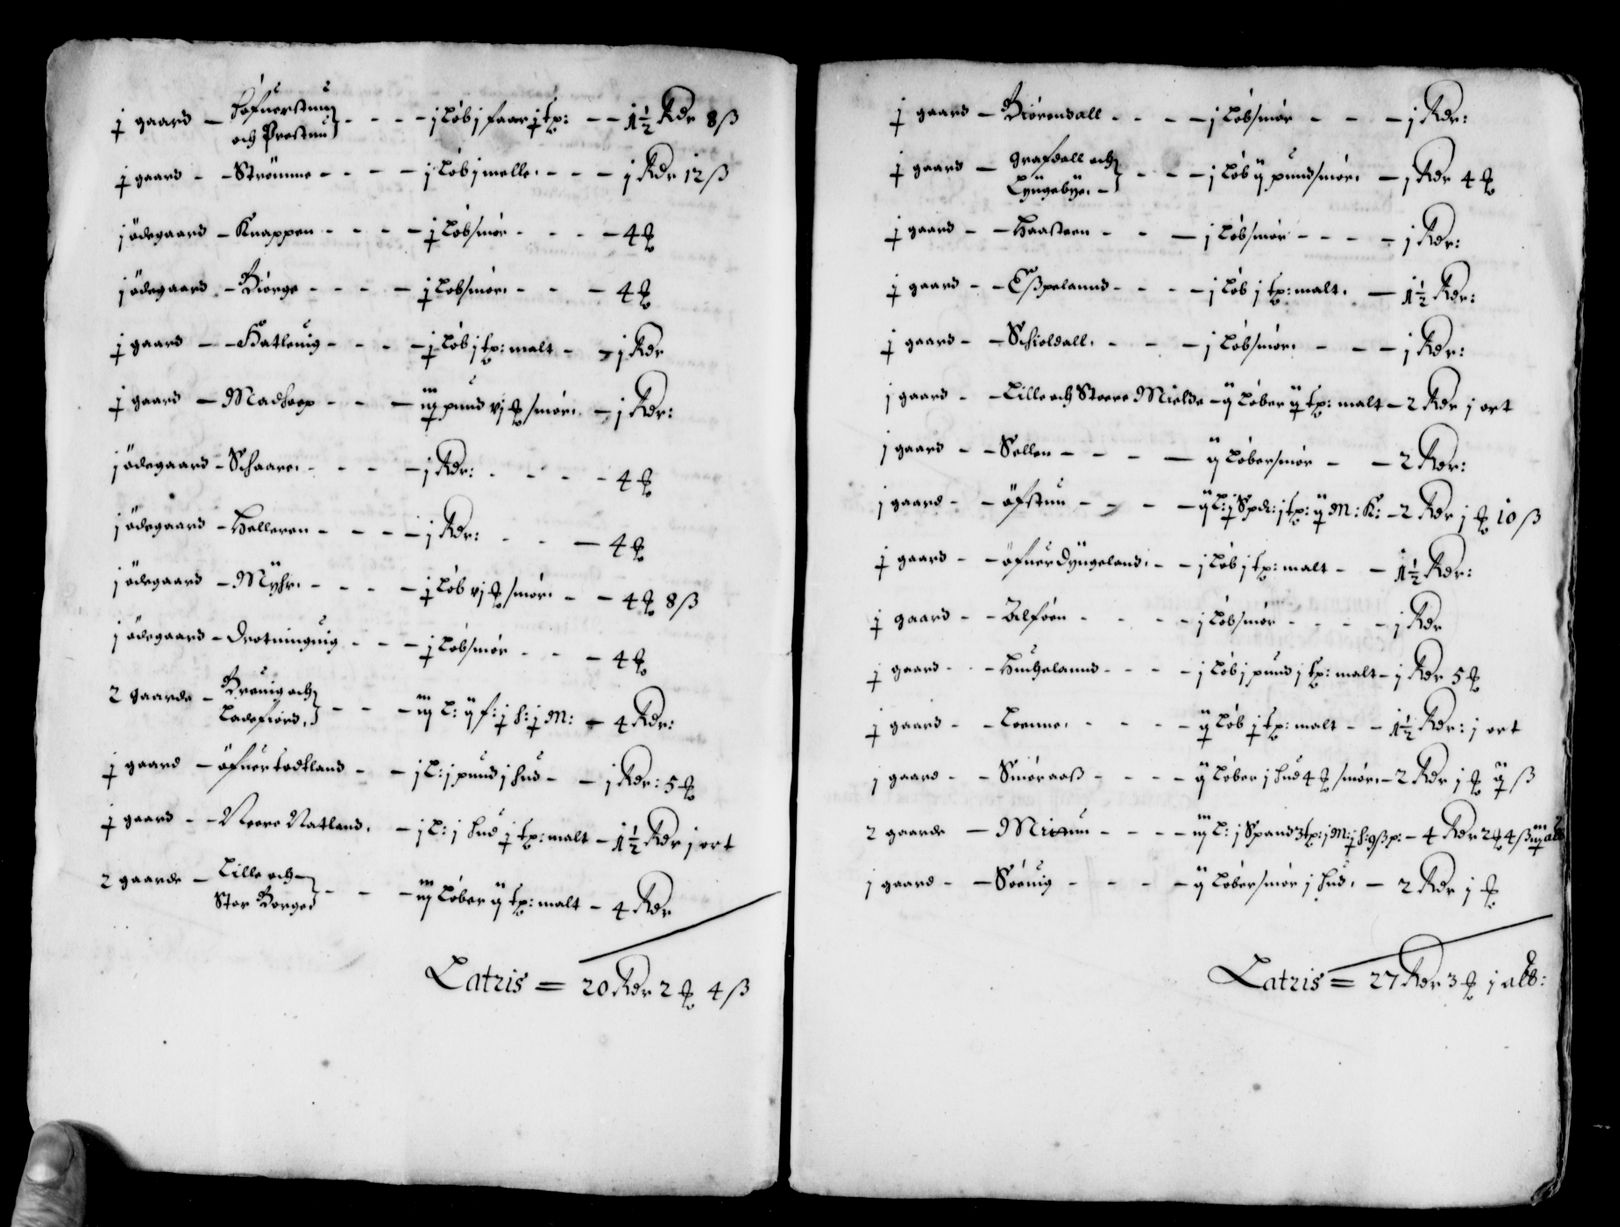 ½ gaard – Höfuerstun
och Prestun – – – – j Löb j faar ½ tp: – – 1½ Rdr 8 ß
½ gaard – – Strömme – – – – j Löb j melle – – – j Rdr 12 ß
j ödegaard – Knappen – – – – ½ Löb smör – – – – 4 ₰
j ödegaard – Biörge – – – – ½ Löb smör – – – 4 ₰
½ gaard – – Hatleuig – – – – ½ Löb j tp: malt – – j Rdr
½ gaard – Madhop – – – – iij pund vj ₰ smör – j Rdr:
j ödegaard – Schaare – – – – j Rdr: – – – – 4 ₰
j ödegaard – Helleren – – – – j Rdr: – – – 4 ₰
j ödegaard – Myhr – – – – ½ Löb vj ₰ smör – – 4 ₰ 8 ß
j ödegaard – Drotninguig – – – ½ Löb smör – – – 4 ₰
2 gaarde – Breuig och
Ladefiord – – – iij L: ij f: ½ h: ½ M: – 4 Rdr:
½ gaard – öfuer todtland – – j L: j pund j hud – – j Rdr: 5 ₰
½ gaard – – Neere Natland – j L: j hud ½ tp: malt – 1½ Rdr j ort
2 gaarde – Lille och
Stor Borge – – – iij Löber ij tp: malt – 4 Rdr
Latris = 20 Rdr 2 ₰ 4 ß
½ gaard – Biörendall – – – – j Löb smör – – – j Rdr:
½ gaard – Grafdall och
Lyngebye – – – – j Löb ij pund smör – j Rdr 4 ₰
½ gaard – – Haasteen – – – j Löb smör – – – – j Rdr:
½ gaard – – Eßpelannd – – – – j Löb j tp: malt – 1½ Rdr:
½ gaard – – Schioldall – – – j Löb smör – – – j Rdr:
j gaard – – Lille och Stoere Mielde – ij Löber ij tp: malt – 2 Rdr j ort
j gaard – – Sellen – – – – ij Löber smör – – 2 Rdr:
j gaard – – öfstun – – – – ij L: ½ Spd: j tp: ij M: K: – 2 Rdr j ₰ 10 ß
½ gaard – – öfuer Dyngeland – – j Löb j tp: malt – – 1½ Rdr:
½ gaard – – Alföen – – – – j Löb smör – – – – j Rdr
½ gaard – – Huchelannd – – – – j Löb j pund j tp: malt – j Rdr 5 ₰
½ gaard – – Loenne – – – – Löb ½ tp: malt – – 1½ Rdr: j ort
j gaard – – Smöraaß – – – – ij Löber j hud 4 ₰ smör – 2 Rdr j ₰ ß
2 gaarde – Mi – – – – iij L: j Spand 3 tp: j M: ½ h: 9 ß p: – 4 Rdr 2 ₰ 4 ß
j gaard – – Söeuig – – – – ij Löber smör j hud – 2 Rdr j ₰
Latris = 27 Rdr 3 ₰ j alb: